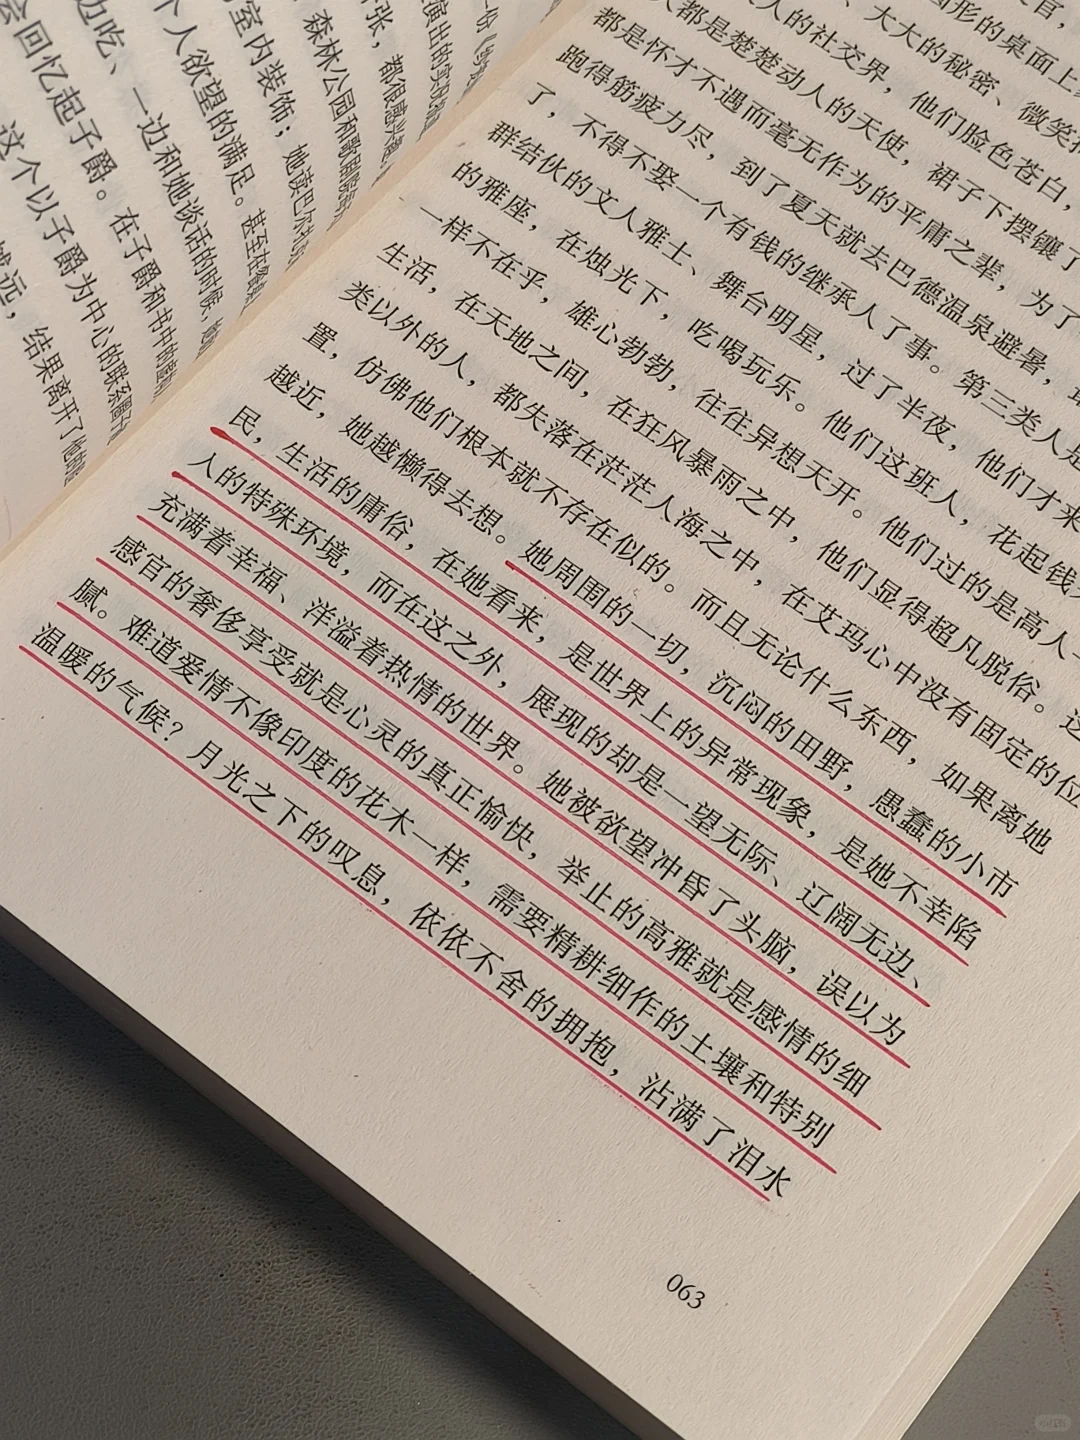 份
演出的实况
张，都很感兴趣
森林公园和歌剧院
室内装饰；她读巴尔扎克
个人欲望的满足。甚至在餐桌
边吃、一边和她谈话的时候，她
会回忆起子爵。在子爵和书中的虚构
这个以子爵为中心的联系圈子
越远，结果离开了他的
官，
圆形的桌面上
、大大的秘密、微笑
人的社交界，他们脸色苍白，
人都是楚楚动人的天使，裙子下摆镶了
都是怀才不遇而毫无作为的平庸之辈，为了
跑得筋疲力尽，到了夏天就去巴德温泉避暑，
了，不得不娶一个有钱的继承人了事。第三类人是
群结伙的文人雅士、舞台明星，过了半夜，他们才来
的雅座，在烛光下，吃喝玩乐。他们这班人，花起钱
一样不在乎，雄心勃勃，往往异想天开。他们过的是高人一
生活，在天地之间，在狂风暴雨之中，他们显得超凡脱俗。这
类以外的人，都失落在茫茫人海之中，在艾玛心中没有固定的位
置，仿佛他们根本就不存在似的。而且无论什么东西，如果离她
越近，她越懒得去想。她周围的一切，沉闷的田野，愚蠢的小市
民，生活的庸俗，在她看来，是世界上的异常现象，是她不幸陷
人的特殊环境，而在这之外，展现的却是一望无际、辽阔无边、
充满着幸福、洋溢着热情的世界。她被欲望冲昏了头脑，误以为
感官的奢侈享受就是心灵的真正愉快，举止的高雅就是感情的细
腻。难道爱情不像印度的花木一样，需要精耕细作的土壤和特别
温暖的气候？月光之下的叹息，依依不舍的拥抱，沾满了泪水
063